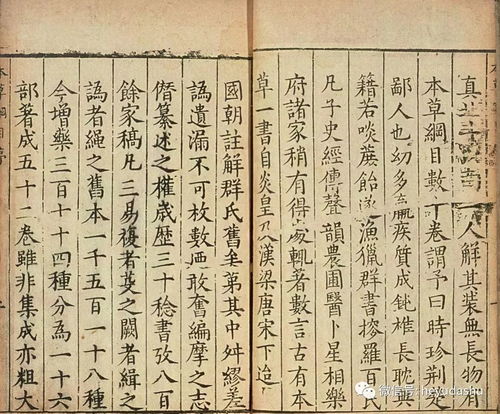 真 一人解其裝無長物有
本草綱目數十卷謂予曰時珍荊楚
鄙人也幼多羸疾質成鈍椎長耽典
籍若啖蔗飴遂漁獵群書搜羅百氏
凡子史經傳聲韻農圃醫卜星相樂
府諸家稍有得處輒著數言古有本
草一書自炎皇及漢梁唐宋下迨
國朝註解群氏舊矣第其中舛繆差
譌遺漏不可枚數迺敢奮編摩之志
僭纂述之權歲歷三十稔書攷八百
餘家稿凡三易複者芟之闕者緝之
譌者繩之舊本一千五百一十八種
今增藥三百七十四種分為一十六
部著成五十二卷雖非集成亦粗大
本草綱目序
微信号: heyudashu